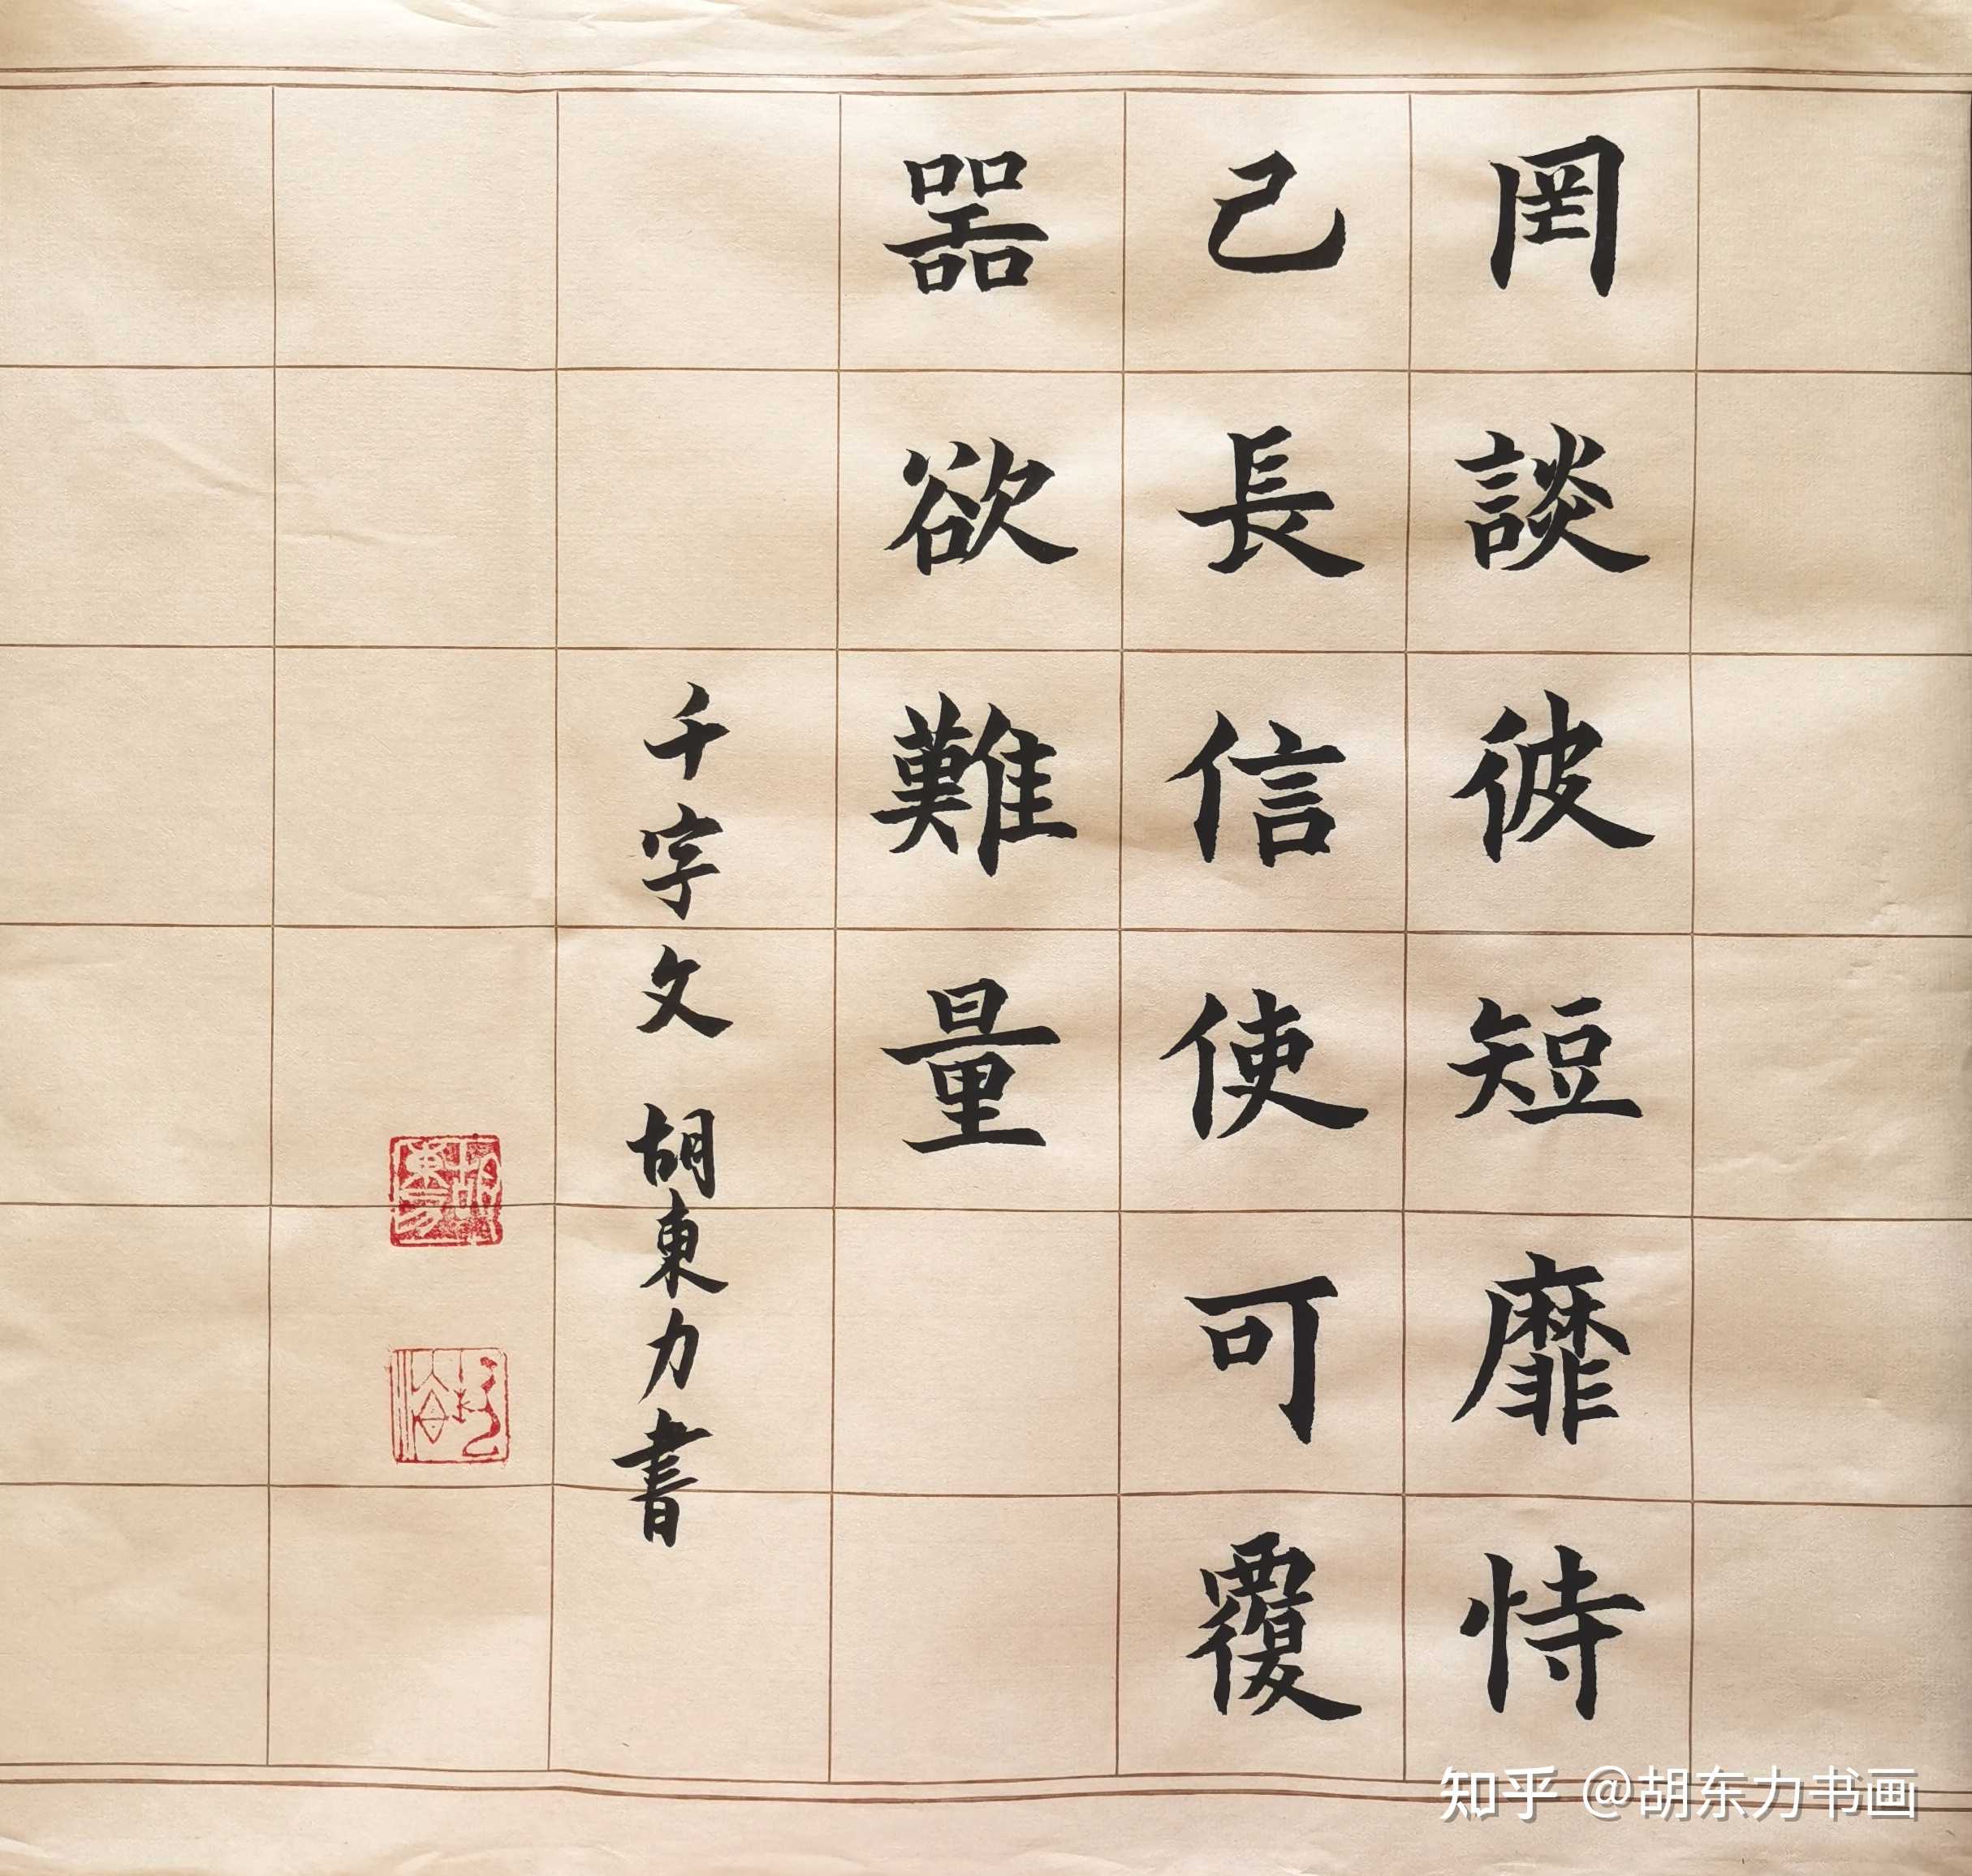 罔談彼短靡恃
己長信使可覆
器欲難量
千字文 胡東力書
知乎 @胡东力书画